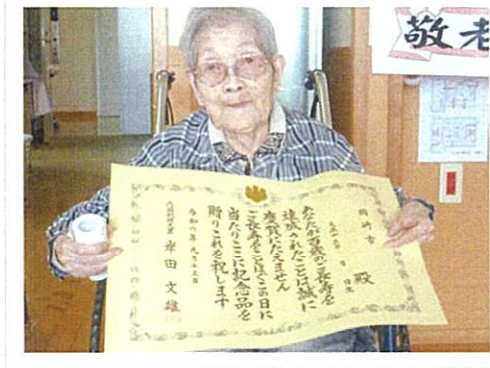 敬老
殿
あなたが百歳のご長寿を
達成されたことは誠に
慶賀にたえません
ご長寿をことほぎこの日に
当たりここに記念品を
贈りこれを祝します
令和六年九月十五日
内閣総理大臣 岸田文雄